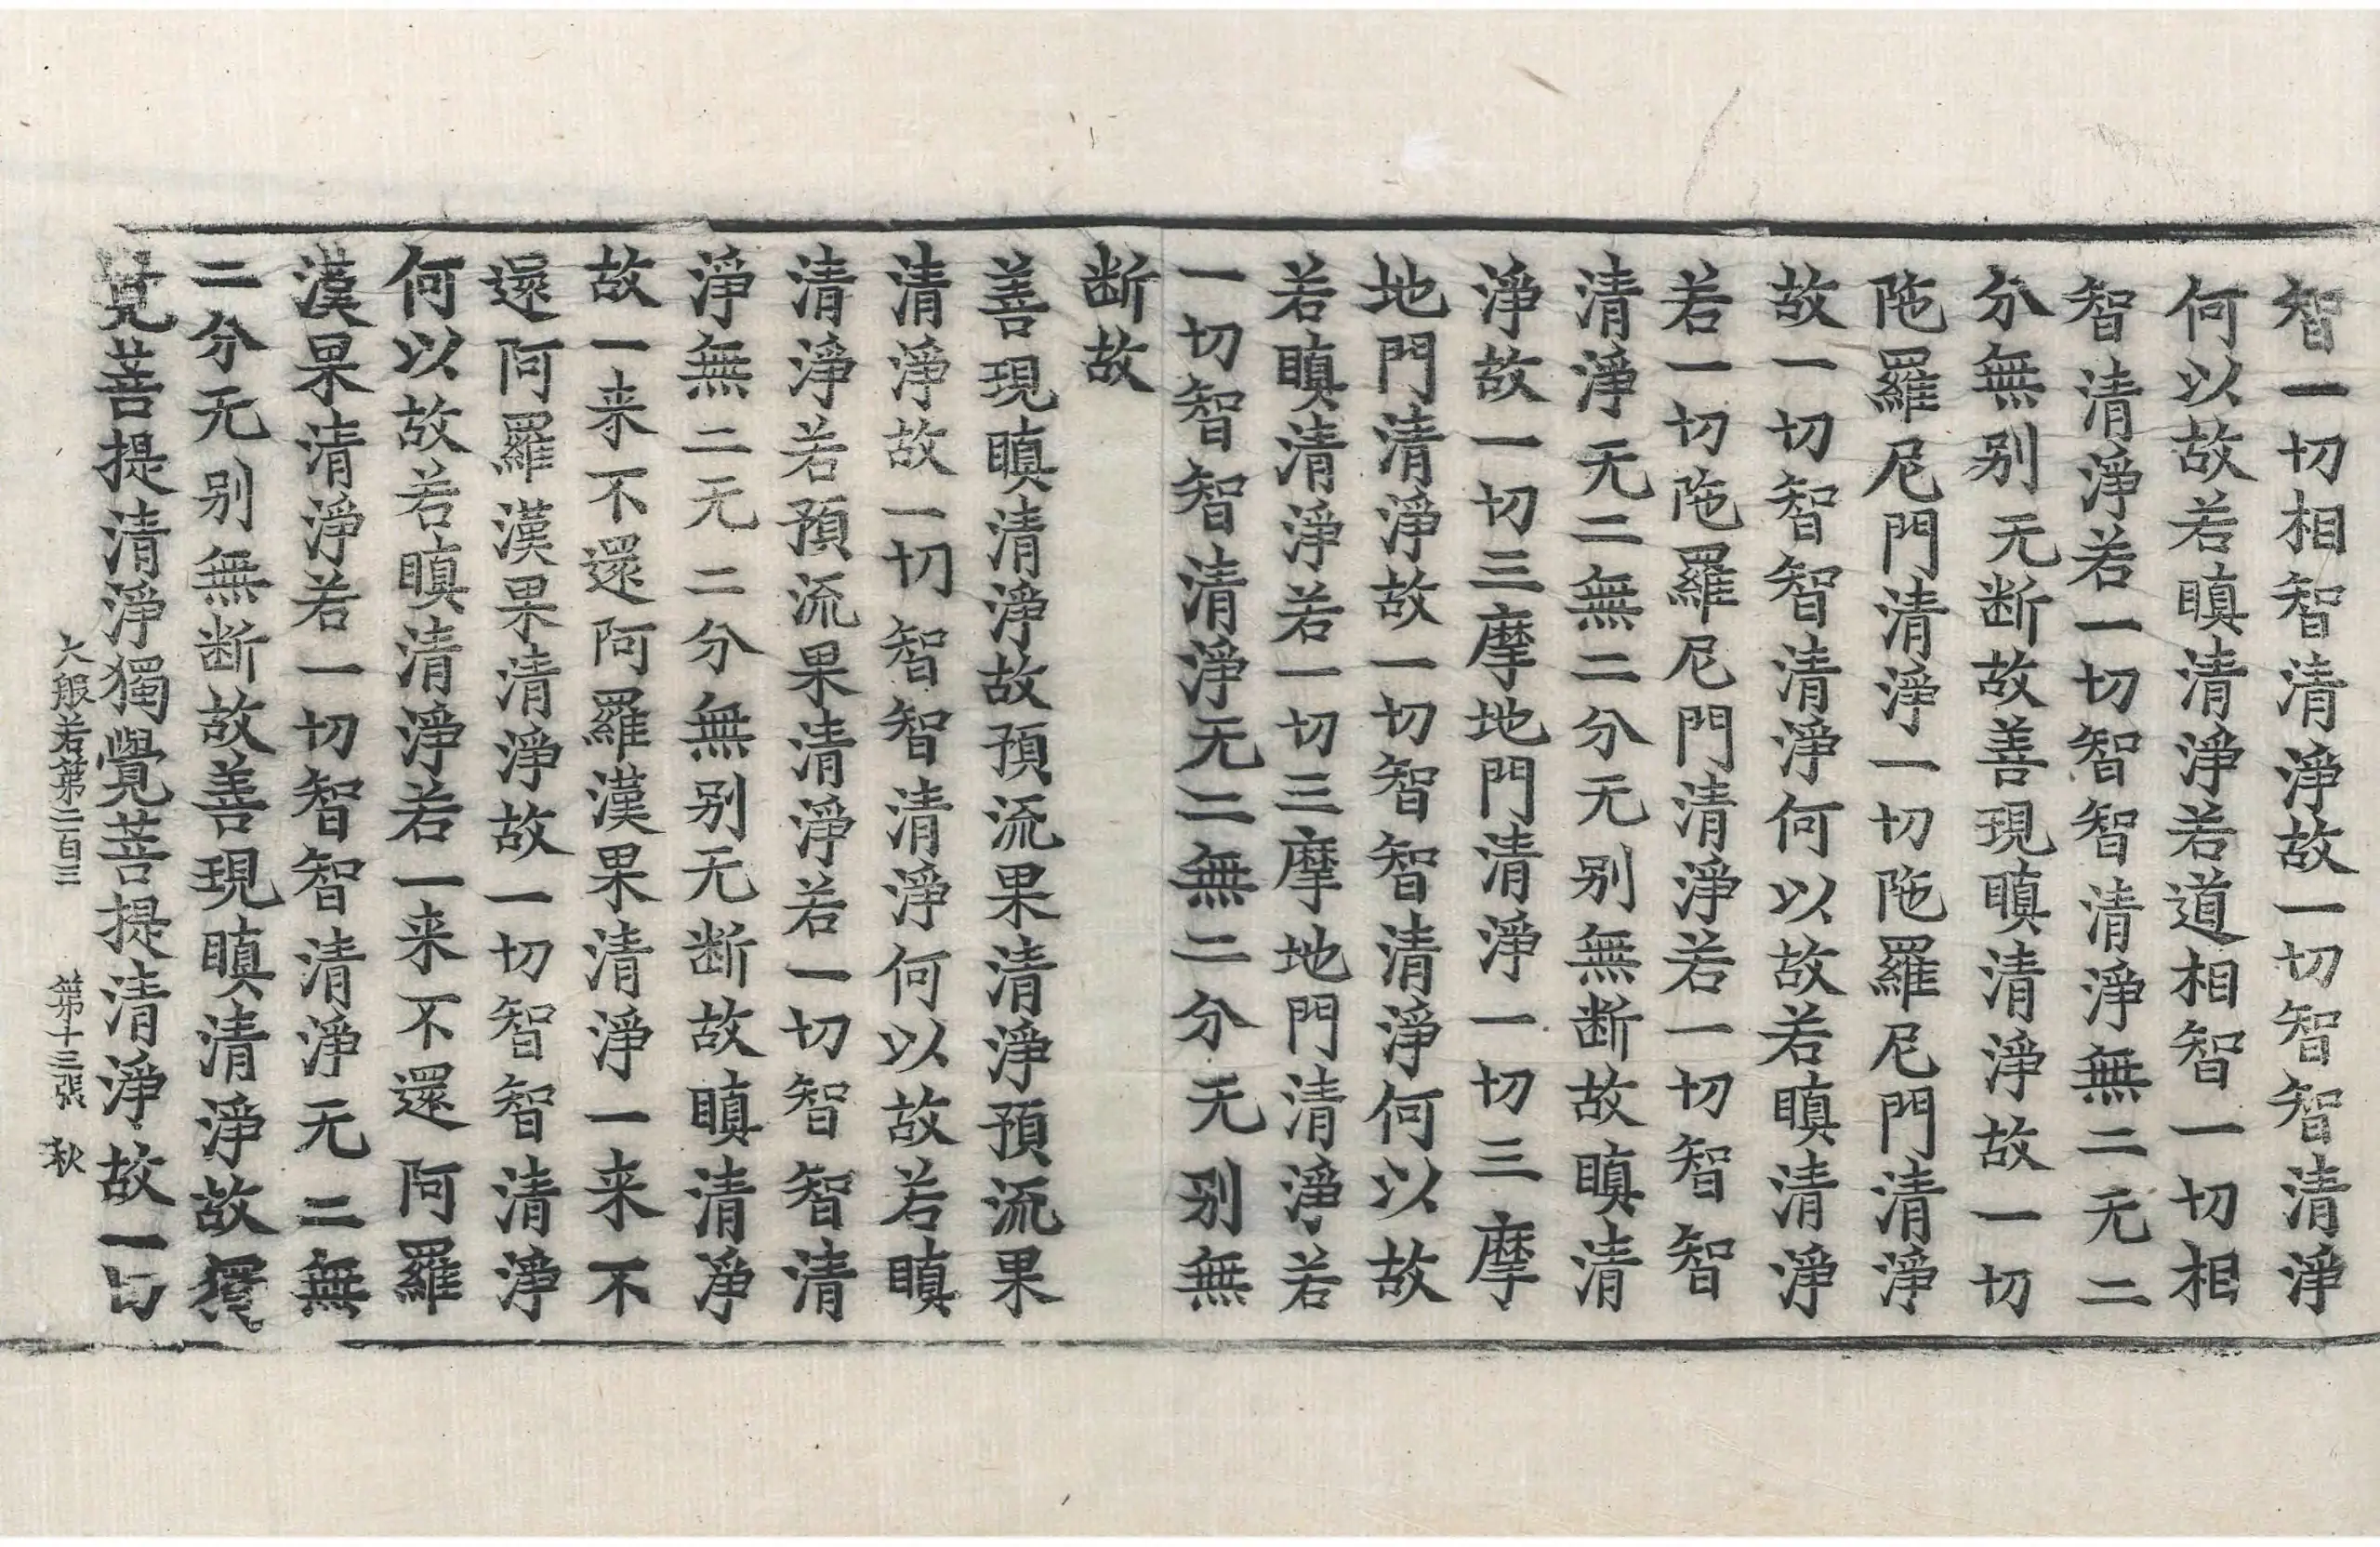 智一切相智清淨故一切智智清淨
何以故若瞋清淨若道相智一切相
智清淨若一切智智清淨無二无二
分無别无断故善現瞋清淨故一切
陁羅尼門清淨一切陁羅尼門清淨
故一切智智清淨何以故若瞋清淨
若一切陁羅尼門清淨若一切智智
清淨无二無二分无别無断故瞋清
淨故一切三摩地門清淨一切三摩
地門清淨故一切智智清淨何以故
若瞋清淨若一切三摩地門清淨若
一切智智清淨无二無二分无别無
断故
善現瞋清淨故預流果清淨預流果
清淨故一切智智清淨何以故若瞋
清淨若預流果清淨若一切智智清
淨無二无二分無别无断故瞋清淨
故一来不還阿羅漢果清淨一来不
還阿羅漢果清淨故一切智智清淨
何以故若瞋清淨若一来不還阿羅
漢果清淨若一切智智清淨无二無
二分无别無断故善現瞋清淨故獨
覺菩提清淨獨覺菩提清淨故一切
大般若第二百三 第十三張 秋